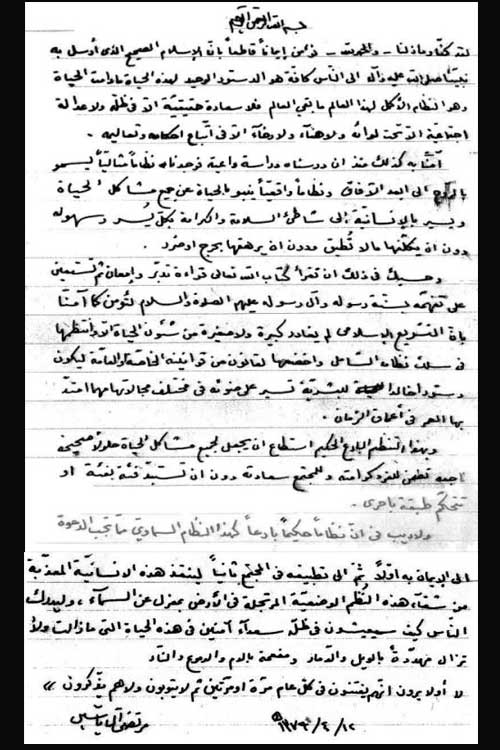 بسم الله الرحمن الرحيم
لقد كنّا وماذلنا - والحمد لله - نؤمن إيماناً قاطعاً بانّ الاسلام الصحيح الذي أرسل به
نبيّنا صلى الله عليه وآله الى النّاس كافة هو الدستور الوحيد لهذه الحياة مادامت الحياة
وهو النظام الأكمل لهذا العالم ما بقي العالم فلا سعادة حقيقيّة الا في ظلّه ولا عدالة
اجتماعيّة الا تحت لوائه ولا هناء ولا رخاء الا في اتّباع احكامه وتعاليمه .
آمنّا به كذلك منذ ان درسناه دراسة واعية فوجدناه نظاماً مثالياً يسمو
بالروح الى ابعد الآفاق ونظاماً واقعيّاً ينبو بالحياة عن جميع مشاكل الحياة
ويسير بالإنسانيّة الى شاطئ السلامة والكرامة بكلّ يُسر وسهولة
دون ان يكلّفها مالا تُطيق ودون ان يرهقها بحرج او ضرر .
وحسبك في ذلك ان تقرأ كتاب الله تعالى قراءة تدبّر وإمعان ثم تستعين
على تفهّمه بسنّة رسوله وآل رسوله عليهم الصلاة والسلام لتؤمن كما آمنّا
بانّ التشريع الإسلامي لم يغادر كبيرة ولا صغيرة من شؤون الحياة الا وانتظمها
في سلك نظامه الشامل واخضعها لقانون من قوانينه الخاصة والعامّة ليكون
دستوراً خالداً للبشريّة تسير على ضوئه في مختلف مجالاتها مهما امتدّ
بها العمر في أعماق الزمان .
وبهذا التنظيم البارع الحكيم استطاع ان يجعل لجميع مشاكل الحياة حلولاً صحيحة
ناجحة تضمن للفرد كرامته وللمجتمع سعادته دون ان تستبدّ فئة بفئة او
تتحكّم طبقة باخرى .
ولا ريب في انّ نظاماً حكيماً بارعاً كهذا النظام السماوي مما تجب الدعوة
الى الإيمان به اوّلاً ثمّ الى تطبيقه في المجتمع ثانياً لينقذ هذه الانسانيّة المعذّبة
من شقاء هذه النُظم الوضعيّة المرتجلة في الأرض بمعزل عن السمآء ، وليدرك
النّاس كيف سيعيشون في ظلّه سعدآء آمنين في هذه الحياة التي ما زالت ولا
تزال مهدّدةً بالويل والدمار ومفعمة بالدم والدموع والنار
« أولا يرون انّهم يفتنون في كلّ عام مرّة أو مرّتين ثم لا يتوبون ولا هم يذّكرون »
مرتضى آل ياسين